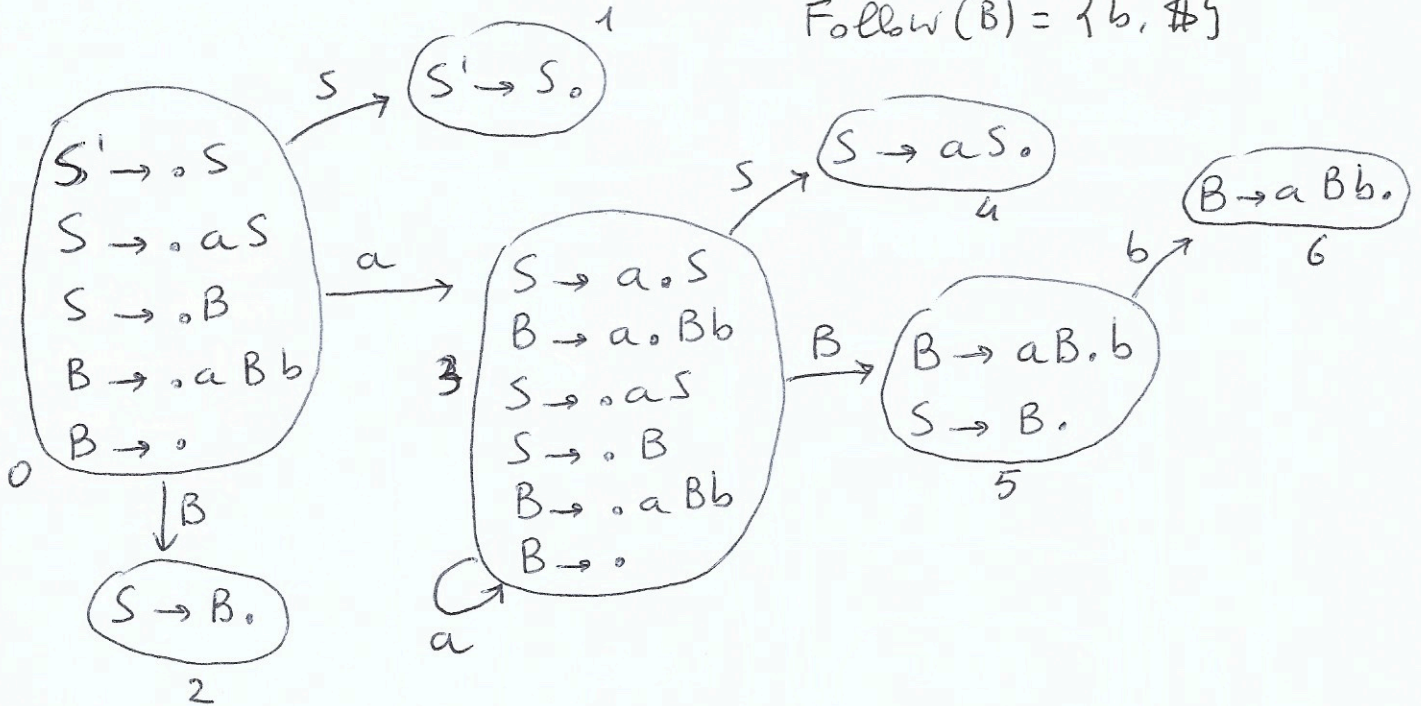 Follow (B) = {b, $}
1
S' → S.
S
S' → .S
S → .aS
S → .B
B → .aBb
B → .
0
a
B
S → B.
2
3
S → a.S
B → a.Bb
S → .aS
S → .B
B → .aBb
B → .
a
S
S → aS.
4
B
B → aB.b
S → B.
5
b
B → aBb.
6